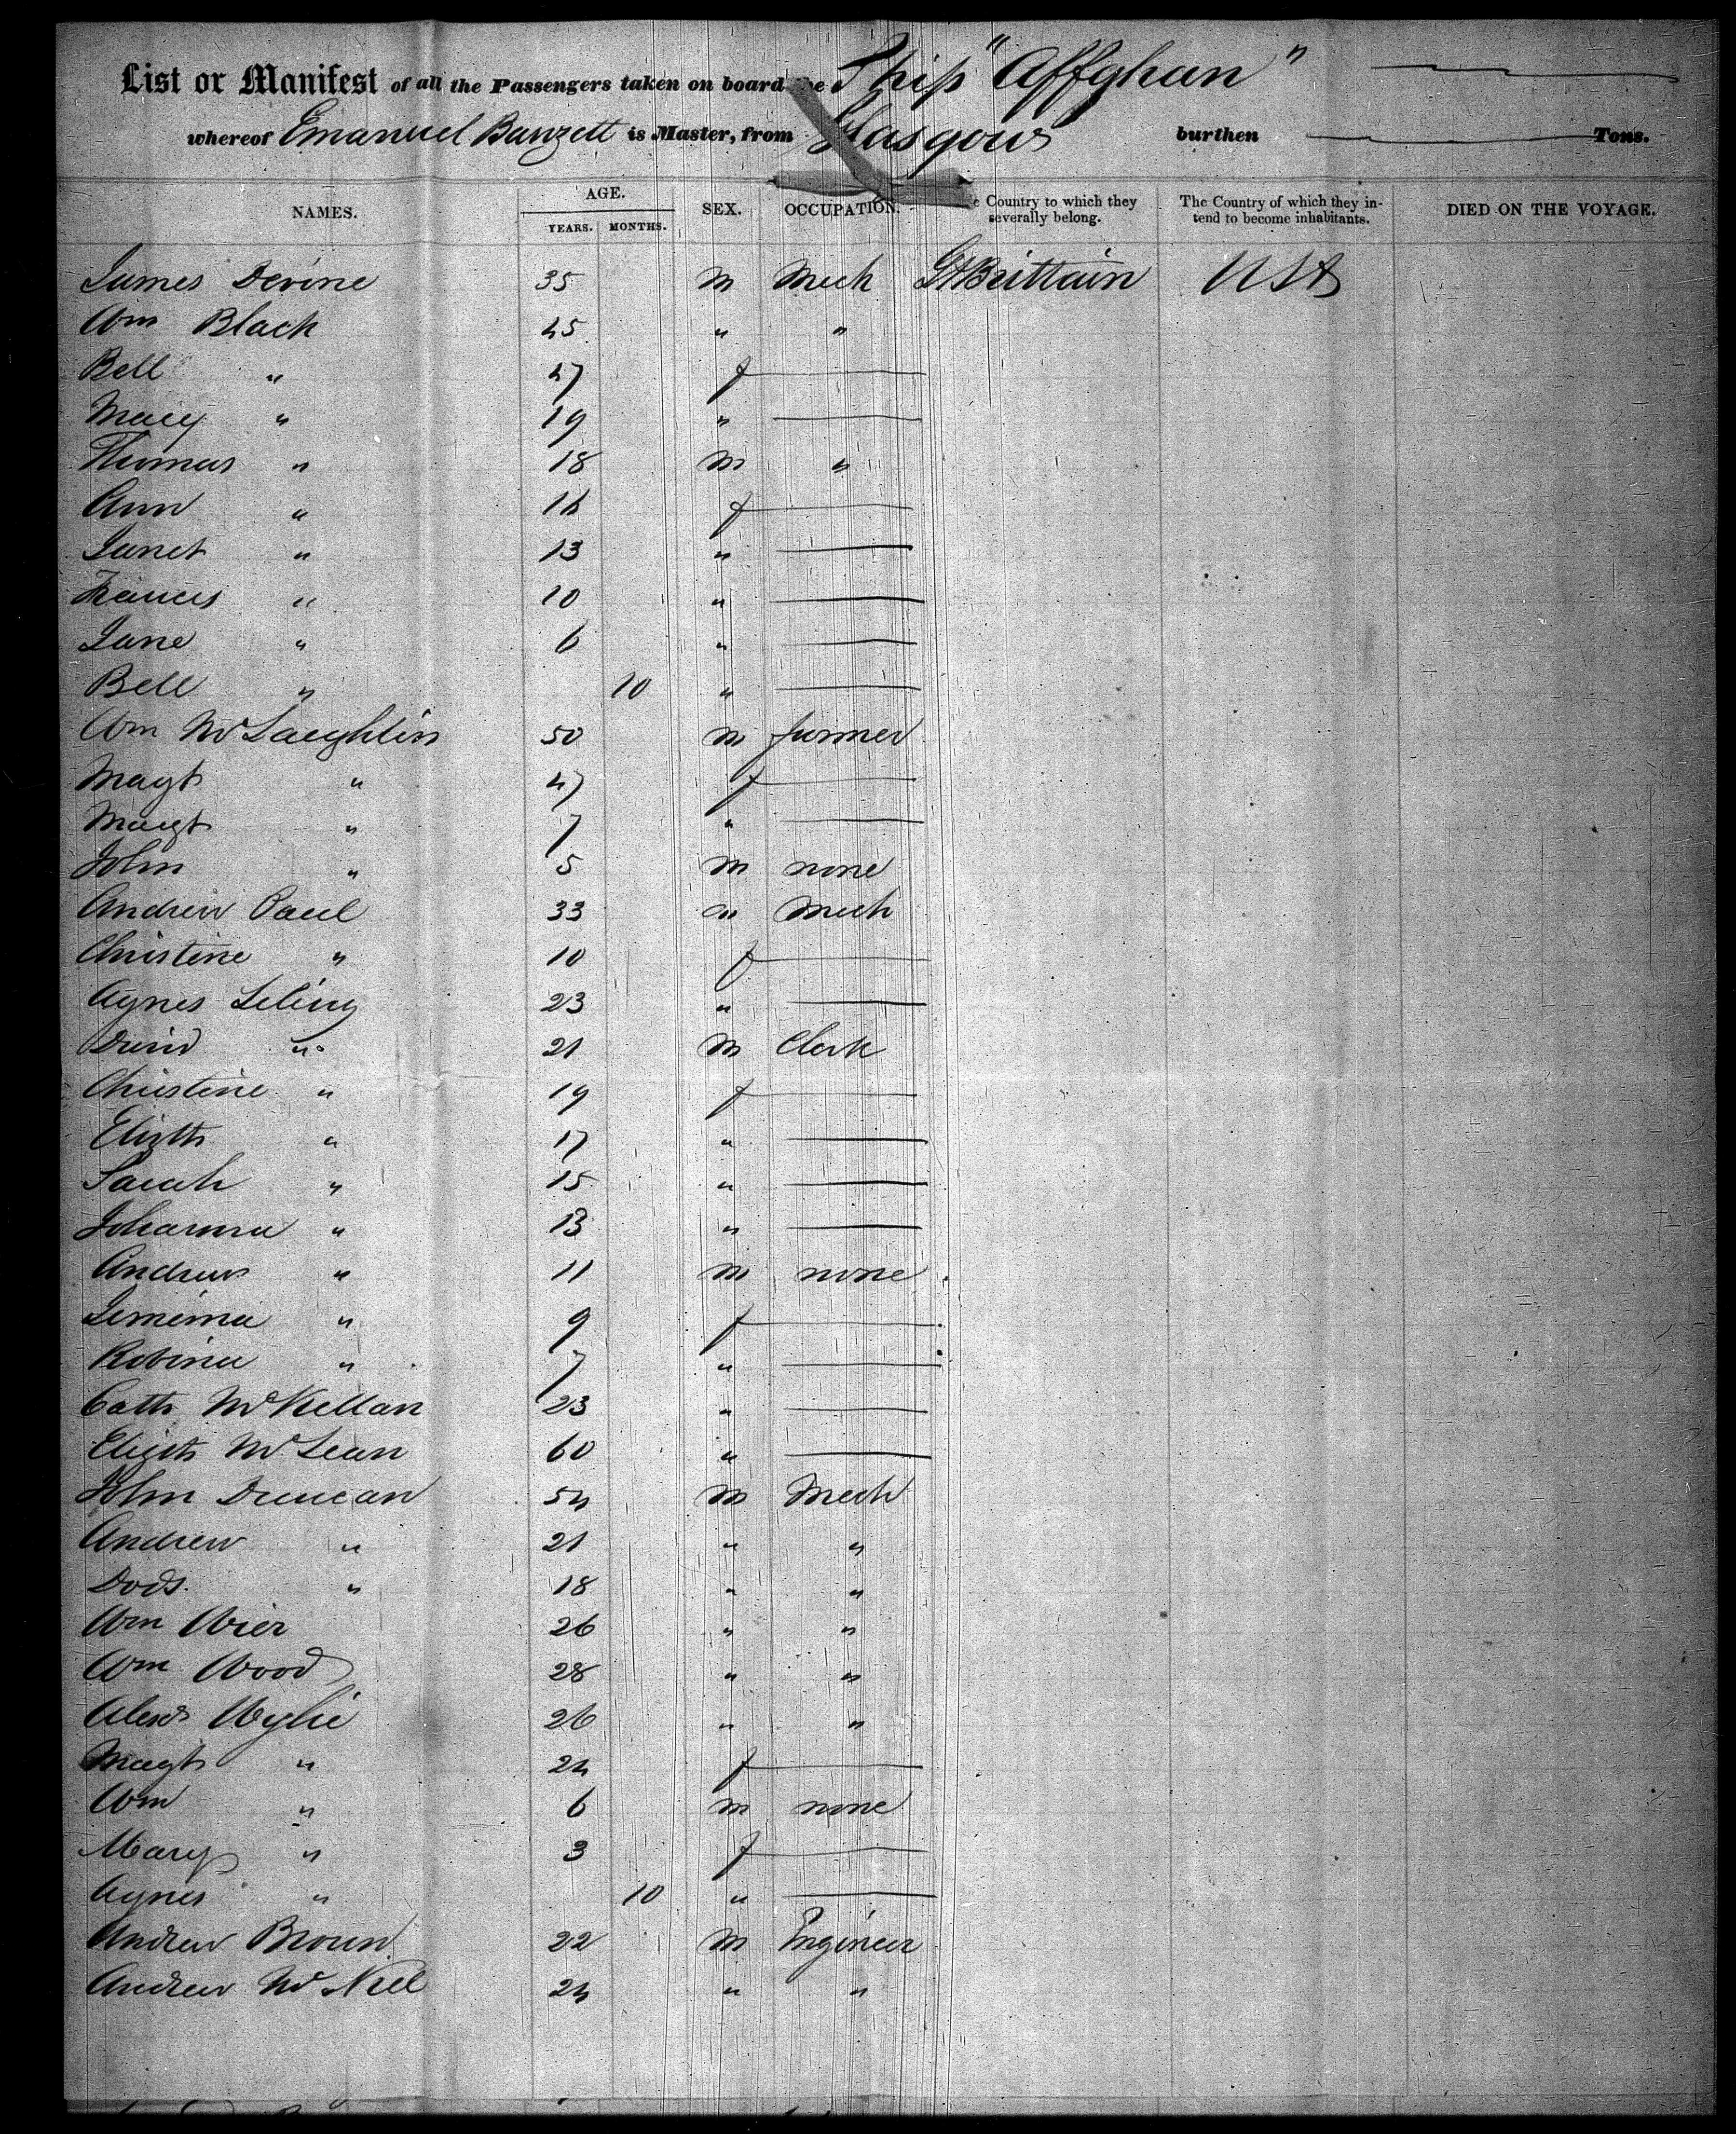 List or Manifest of all the Passengers taken on board the Ship "Affghan"
whereof Emanuel Banzett is Master, from Glasgow burthen Tons.
NAMES. AGE. YEARS. MONTHS. SEX. OCCUPATION. Country to which they severally belong. The Country of which they intend to become inhabitants. DIED ON THE VOYAGE.
James Devine 35 M Mech Gt Brittain USA
Wm Black 45 " "
Bell " 47 f
Mary " 19 "
Thomas " 18 M "
Ann " 16 f
Janet " 13 "
Frances " 10 "
Jane " 6 "
Bell " 10 "
Wm McLaughlin 50 M farmer
Magt " 47 f
Magt " 7 "
John " 5 M none
Andrew Paul 33 M Mech
Christine " 10 f
Agnes 23 "
David " 21 M Clerk
Christine " 19 f
Elizth " 17 "
Sarah " 15 "
Johanna " 13 "
Andrew " 11 M none
Jemima " 9 f
Robina " 7 "
Cath McKellan 23 "
Elizth McLean 60 "
John Duncan 54 M Mech
Andrew " 21 " "
Dods. " 18 " "
Wm Wier 26 " "
Wm Wood 28 " "
Alexd Wylie 26 " "
Magt " 24 f
Wm " 6 M none
Mary " 3 f
Agnes " 10 "
Andrew Broun 22 M Engineer
Andrew McNeel 24 " "